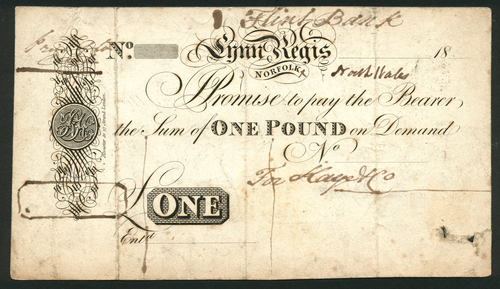 Flint Bank
No.
Lynn Regis
NORFOLK
18
North Wales
I Promise to pay the Bearer,
the Sum of ONE POUND on Demand
No
For Kaye & Co
£ ONE
Entd